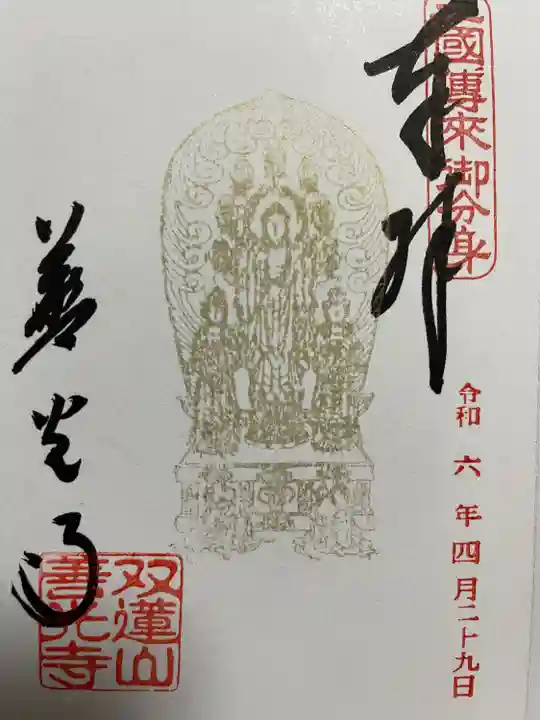 國傳來御分身
奉拝
令和六年四月二十九日
善光寺
双蓮山
善光寺